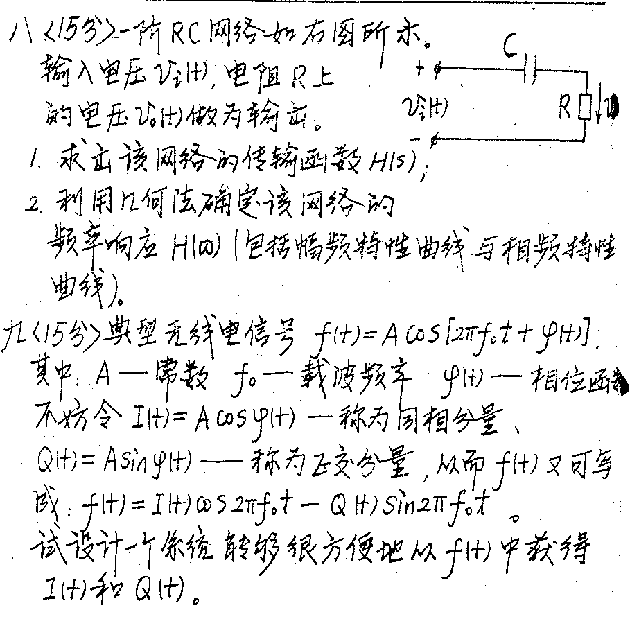 八〈15分〉一阶RC网络如右图所示。
输入电压Vi(t),电阻R上
的电压Vo(t)做为输出。
C
+
Vi(t)
R
-
1. 求出该网络的传输函数H(s);
2. 利用几何法确定该网络的
频率响应H(ω)(包括幅频特性曲线与相频特性
曲线)。
九〈15分〉典型无线电信号 f(t)=Acos[2πf₀t+φ(t)].
其中: A—常数 f₀—载波频率 φ(t)—相位函数
不妨令 I(t)=Acosφ(t)—称为同相分量、
Q(t)=Asinφ(t)—称为正交分量,从而f(t)又可写
成: f(t)=I(t)cos2πf₀t-Q(t)sin2πf₀t。
试设计一个系统能够很方便地从f(t)中获得
I(t)和Q(t)。